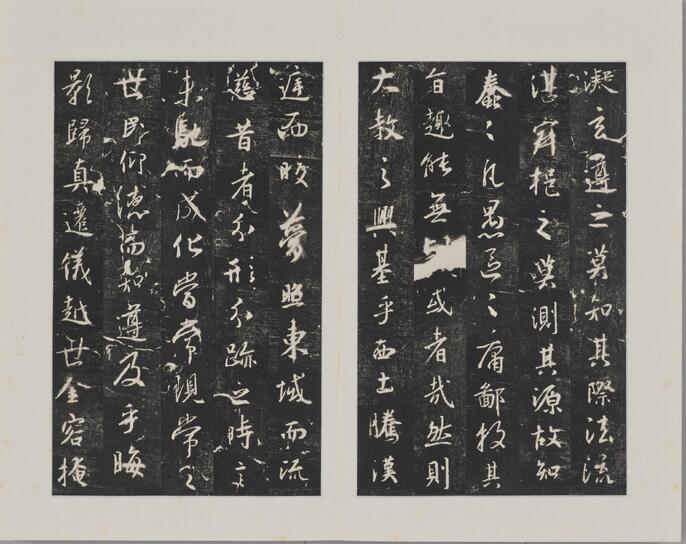 凝玄遵之莫知其際法流
湛寂挹之莫測其源故知
蠢〻凡愚區〻庸鄙投其
旨趣能無或者哉然則
大教之興基乎西土騰漢
庭而皎夢照東域而流
慈昔者分形分跡之時言
未馳而成化當常現常之
世民仰德而知遵及乎晦
影歸真遷儀越世金容掩